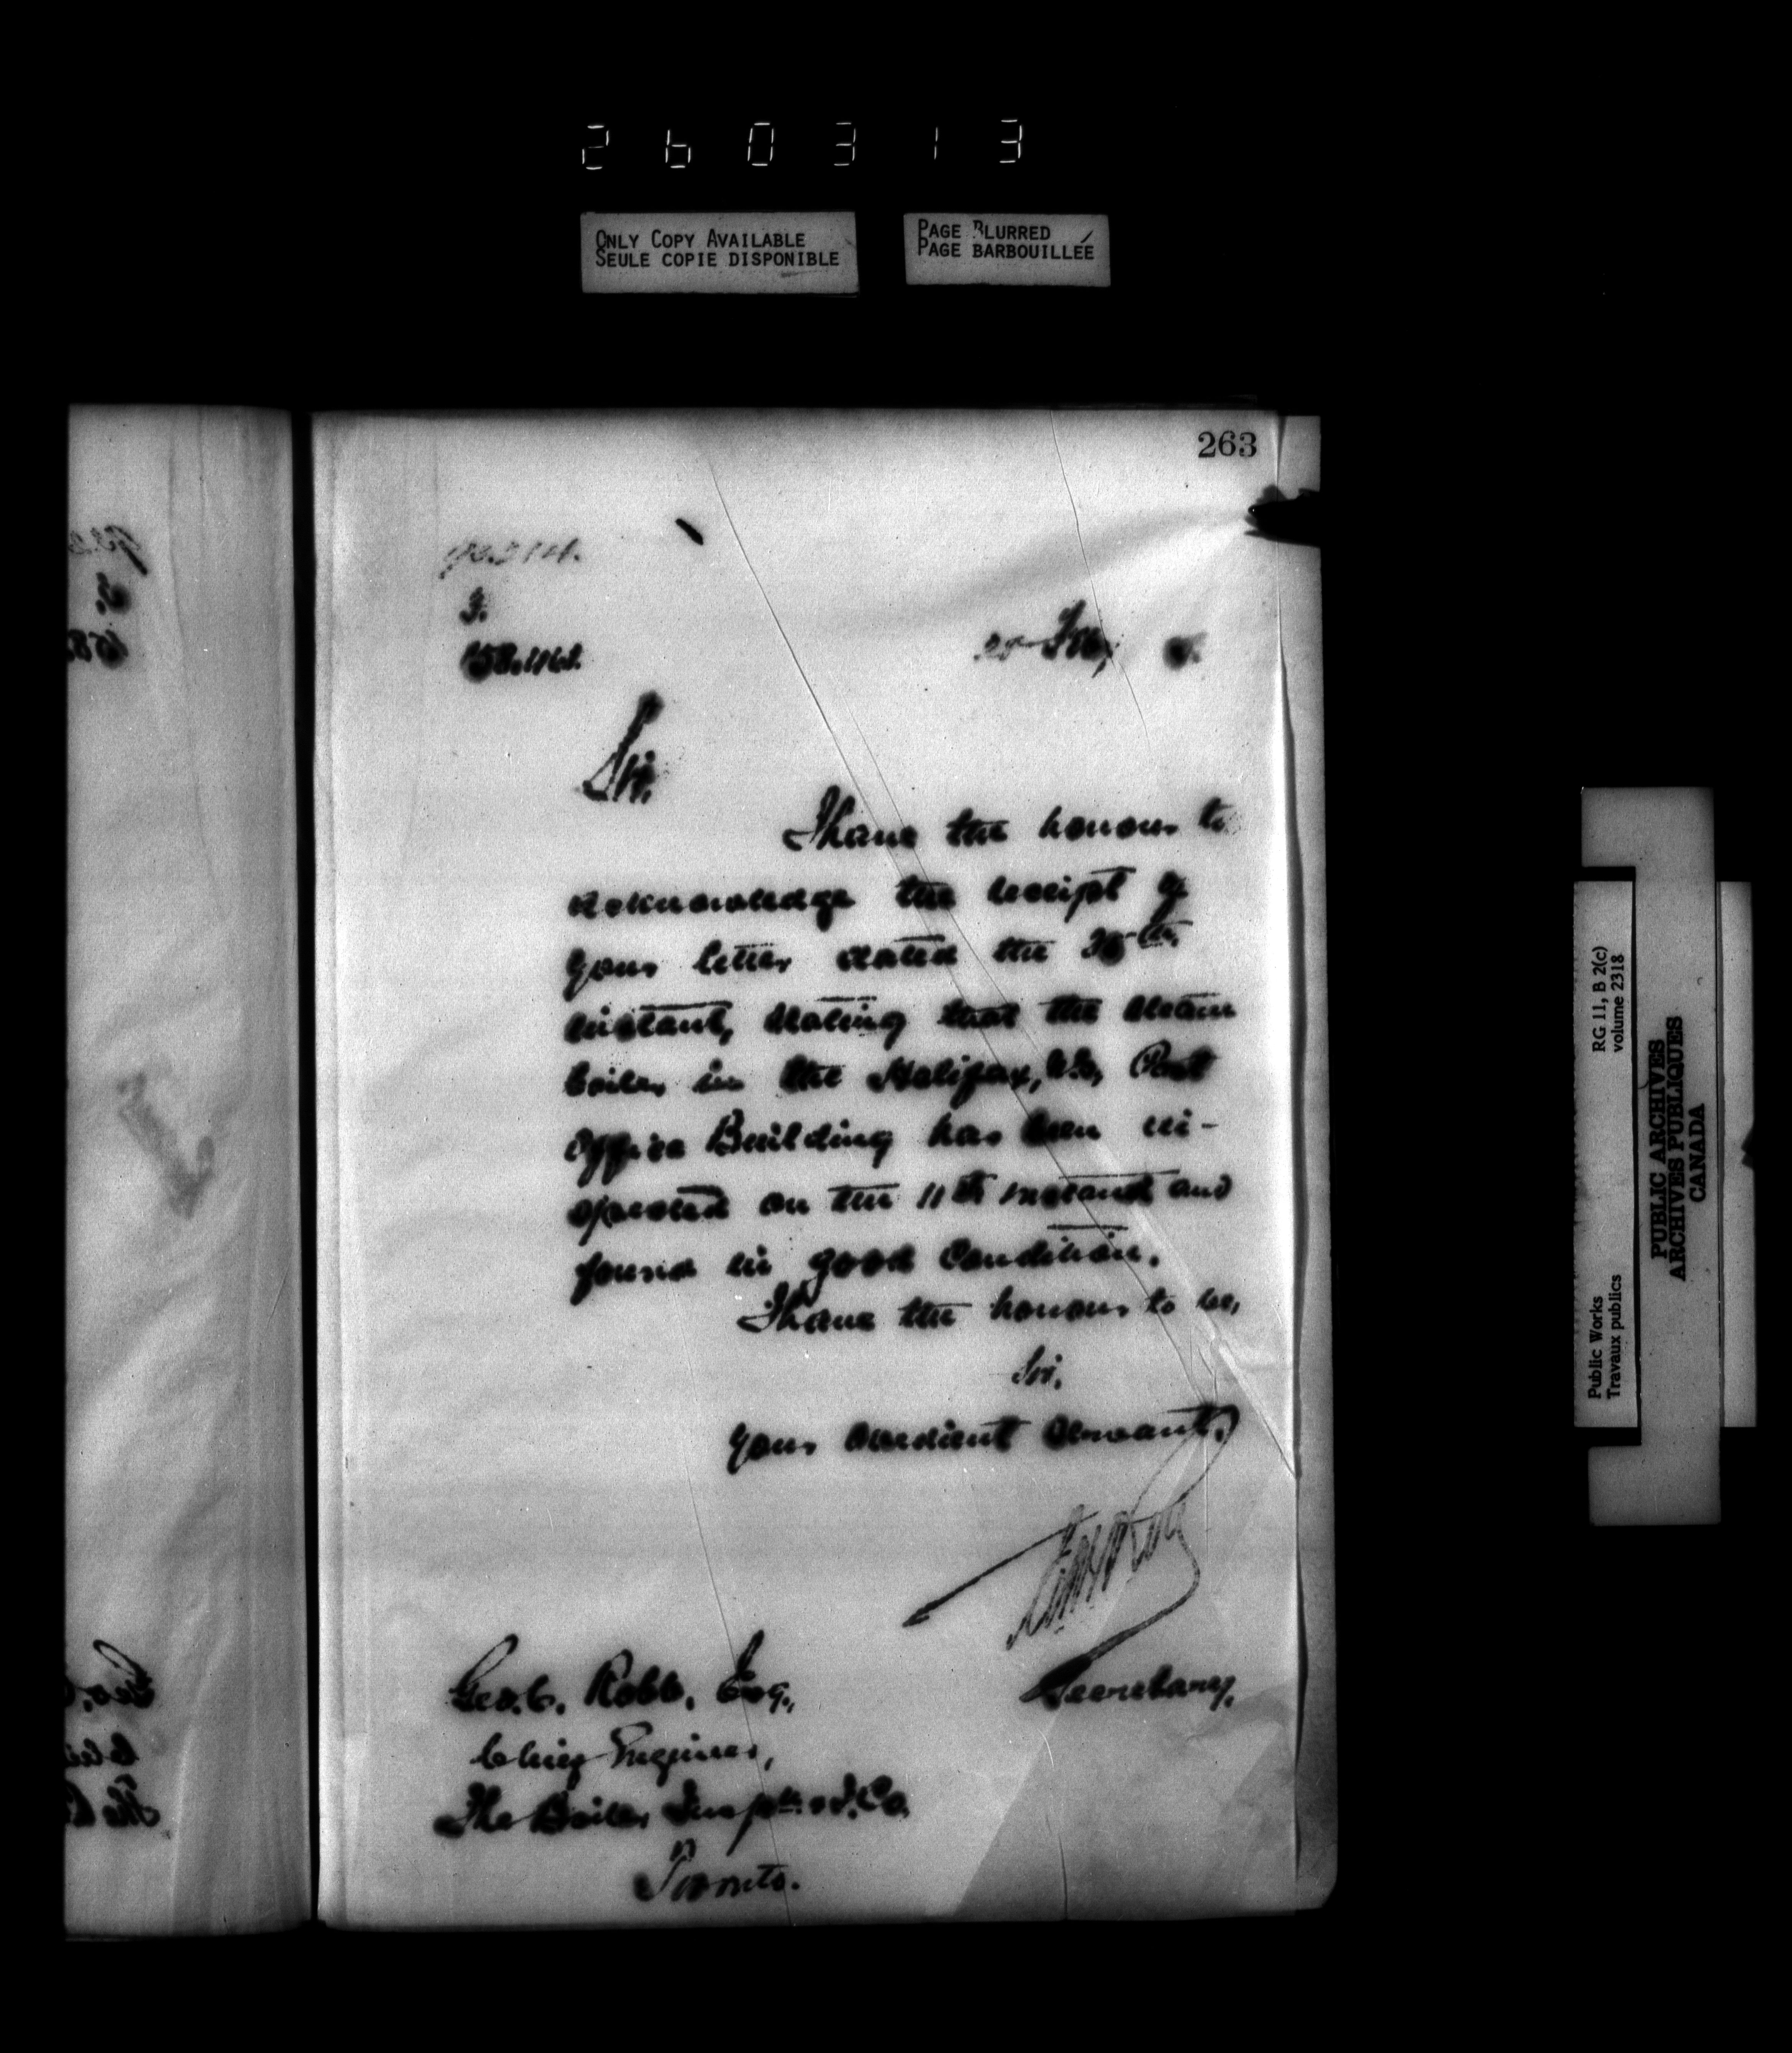 260313
ONLY COPY AVAILABLE
SEULE COPIE DISPONIBLE
PAGE BLURRED
PAGE BARBOUILLÉE
263
3.
Sir,
I have the honour to
acknowledge the receipt of
your letter dated the
instant, stating that the steam
boiler in the Halifax, N.S, Post
Office Building has been in-
spected on the 11th instant and
found in good condition.
I have the honour to be,
Sir,
Your obedient servant,
Secretary.
Geo. C. Robb, Esq.,
Chief Engineer,
The Boiler Insptn. & I. Co.
Toronto.
RG 11, B 2(c)
volume 2318
Public Works
Travaux publics
PUBLIC ARCHIVES
ARCHIVES PUBLIQUES
CANADA